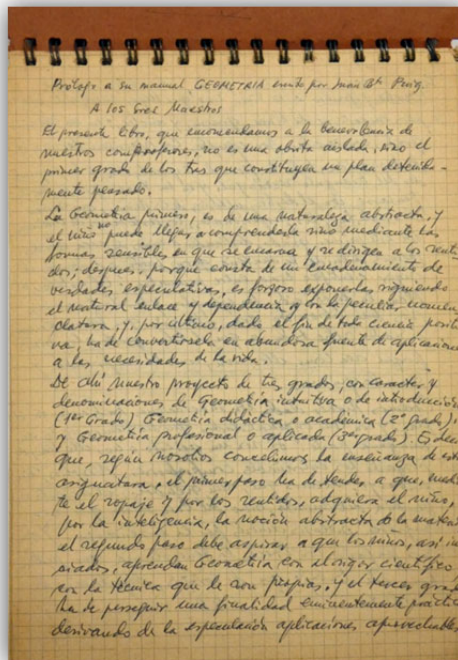 Prólogo a su manual GEOMETRIA escrito por Juan Bta Puig.
A los Sres Maestros
El presente libro, que encomendamos a la benevolencia de
nuestros comprofesores, no es una obrita aislada, sino el
primer grado de los tres que constituyen un plan detenida-
mente pensado.
La Geometría primero, es de una naturaleza abstracta, y
el niño no puede llegar a comprenderla sino mediante las
formas sensibles en que se encarna y se dirigen a los senti-
dos; despues, porque consta de un encadenamiento de
verdades especulativas, es forzoso exponerlas siguiendo
el natural enlace y dependencia y con la peculiar nomen-
clatura, y, por ultimo, dado el fin de toda ciencia positi-
va, ha de convertirsela en abundosa fuente de aplicaciones
a las necesidades de la vida.
De ahí nuestro proyecto de tres grados, con caracter y
denominaciones de Geometría intuitiva o de introducción
(1er Grado), Geometría didáctica o académica (2º grado),
y Geometría profesional o aplicada (3º grado). Es decir
que, según nosotros concebimos la enseñanza de esta
asignatura, el primer paso ha de tender a que, median
te el ropaje y por los sentidos, adquiera el niño,
por la inteligencia, la noción abstracta de la materia
el segundo paso debe aspirar a que los niños, así in
ciados, aprendan Geometría con el rigor científico
con la técnica que le son propias, y el tercer grado
ha de perseguir una finalidad eminentemente práctica
derivando de la especulación aplicaciones aprovechables